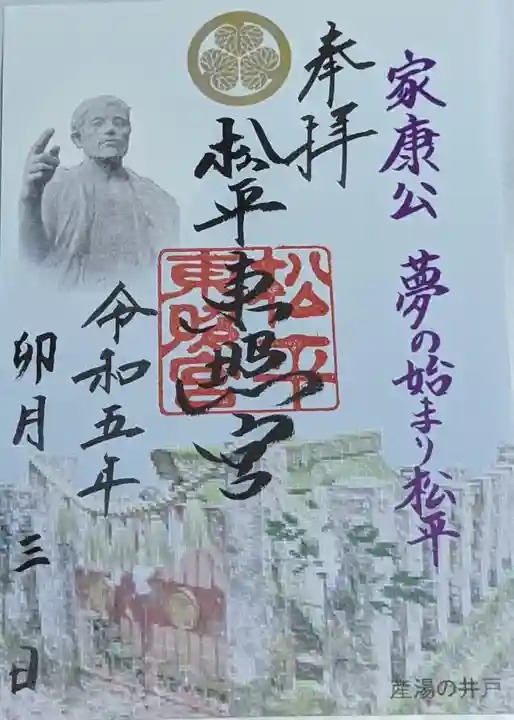 家康公 夢の始まり松平
奉拝
松平東照宮
松平
東照宮
令和五年
卯月 三 日
産湯の井戸